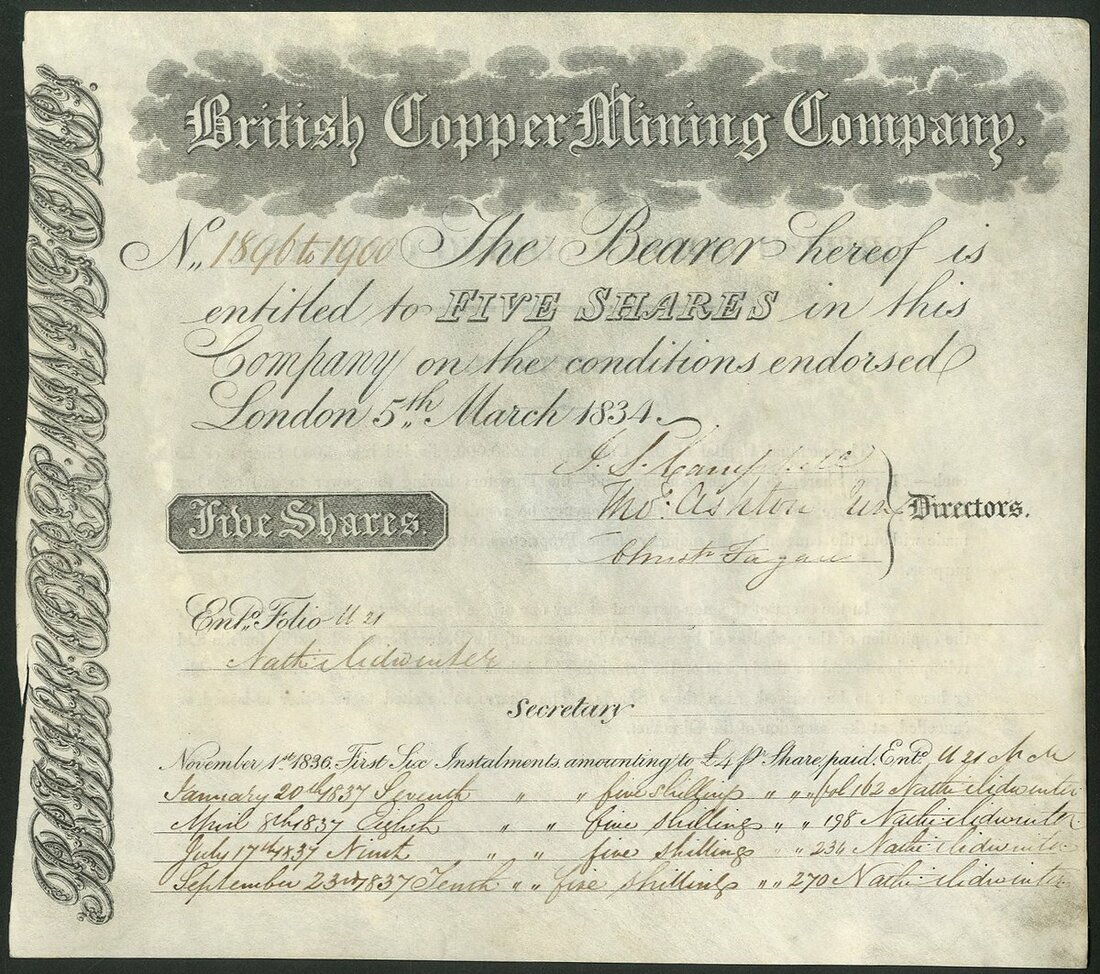 British Copper Mining Company.
No. 1896 to 1900 The Bearer hereof is
entitled to FIVE SHARES in this
Company on the conditions endorsed
London 5th March 1834.
Thos. Ashton
Directors.
Five Shares.
Entd. Folio
Secretary
November 1st 1836. First Six Instalments amounting to £4 pr Share, paid. Entd.
January 20th 1837 Seventh " " five shillings " " fol 162
April 8th 1837 Eighth " " five shillings " " 198
July 17th 1837 Ninth " " five shillings " " 236
September 23rd 1837 Tenth " " five shillings " " 270